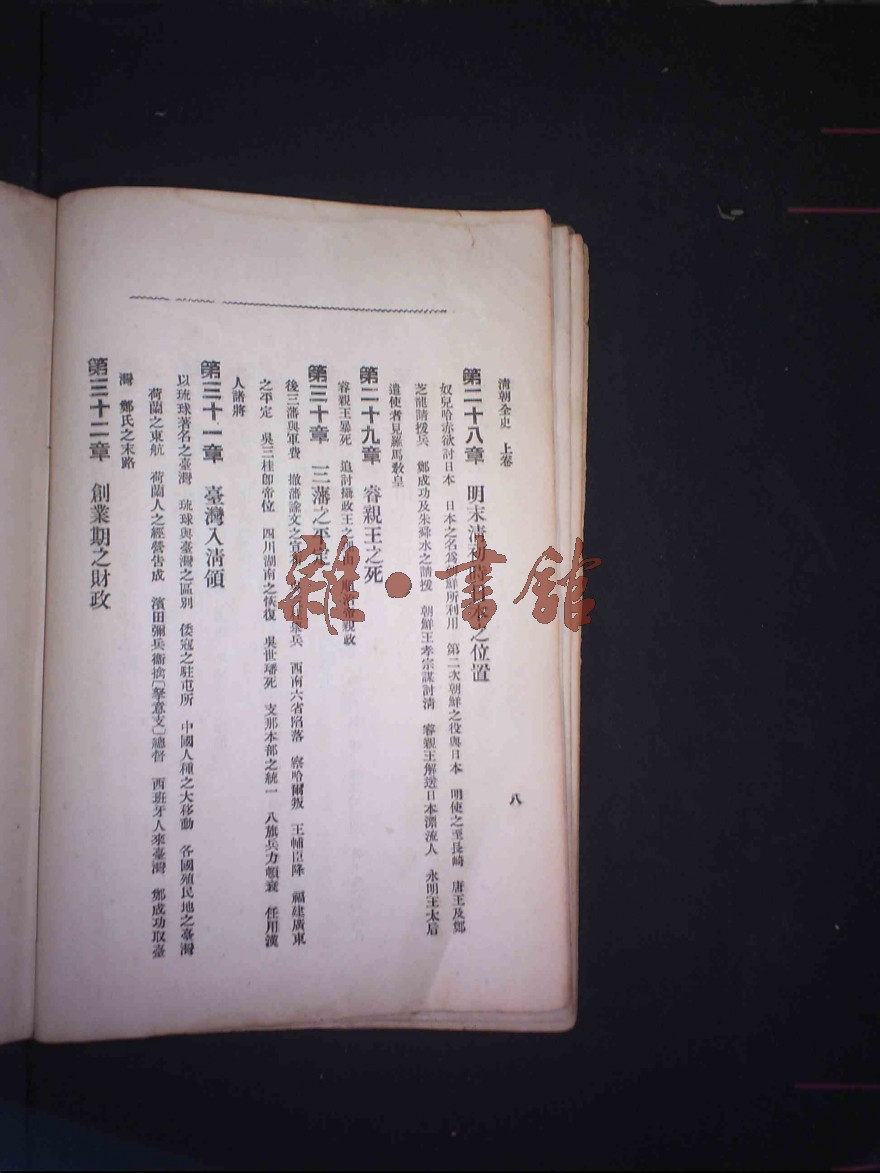 清朝全史 上卷
八
第二十八章 明末清初時日本之位置
奴兒哈赤欲討日本 日本之名爲朝鮮所利用 第二次朝鮮之役與日本 明使之至長崎 唐王及鄭
芝龍請援兵 鄭成功及朱舜水之請援 朝鮮王孝宗謀討清 睿親王解送日本漂流人 永明王太后
遣使者見羅馬敎皇
第二十九章 睿親王之死
睿親王暴死 追討攝政王之 親政
第三十章 三藩之平定
後三藩與軍費 撤藩諭文之 兵 西南六省陷落 察哈爾叛 王輔臣降 福建廣東
之平定 吳三桂卽帝位 四川湖南之恢復 吳世璠死 支那本部之統一 八旗兵力頓衰 任用漢
人諸將
第三十一章 臺灣入淸領
以琉球著名之臺灣 琉球與臺灣之區別 倭寇之駐屯所 中國人種之大移動 各國殖民地之臺灣
荷蘭之東航 荷蘭人之經營吿成 濱田彌兵衞擒〔拏意支〕總督 西班牙人來臺灣 鄭成功取臺
灣 鄭氏之末路
第三十二章 創業期之財政
雜·書館